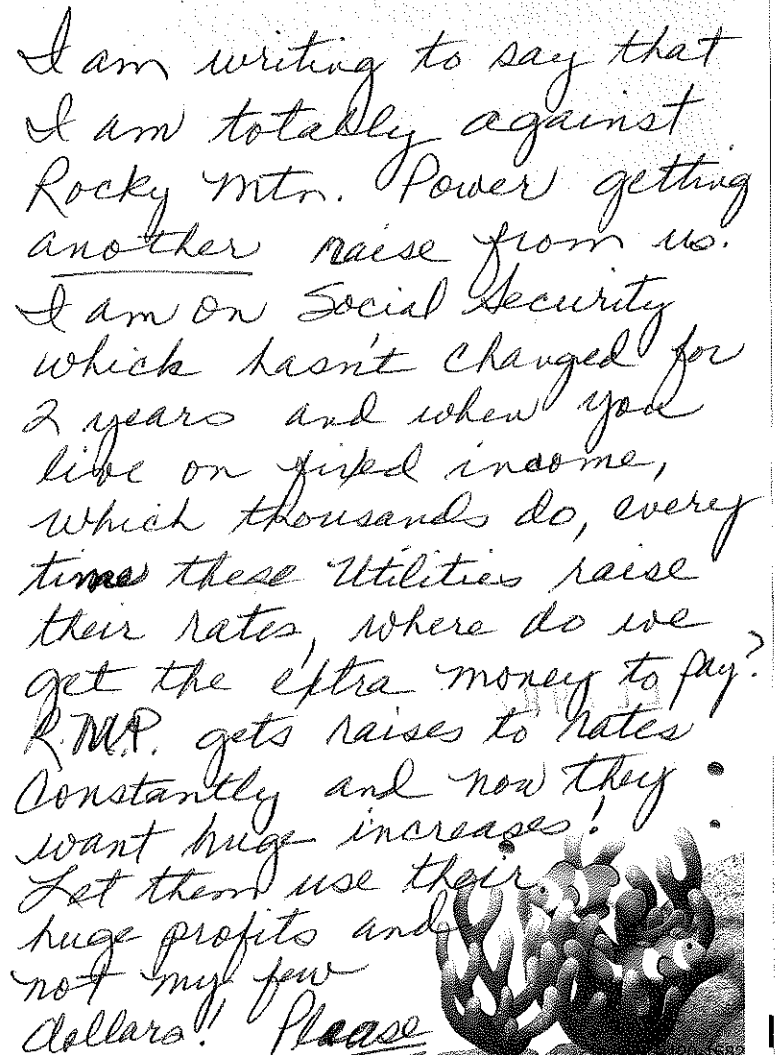 I am writing to say that
I am totally against
Rocky Mtn. Power getting
another raise from us.
I am on Social Security
which hasn't changed for
2 years and when you
live on fixed income,
which thousands do, every
time these Utilities raise
their rates, where do we
get the extra money to pay?
R.M.P. gets raises to rates
constantly and now they
want huge increases!
Let them use their
huge profits and
not my few
dollars! Please